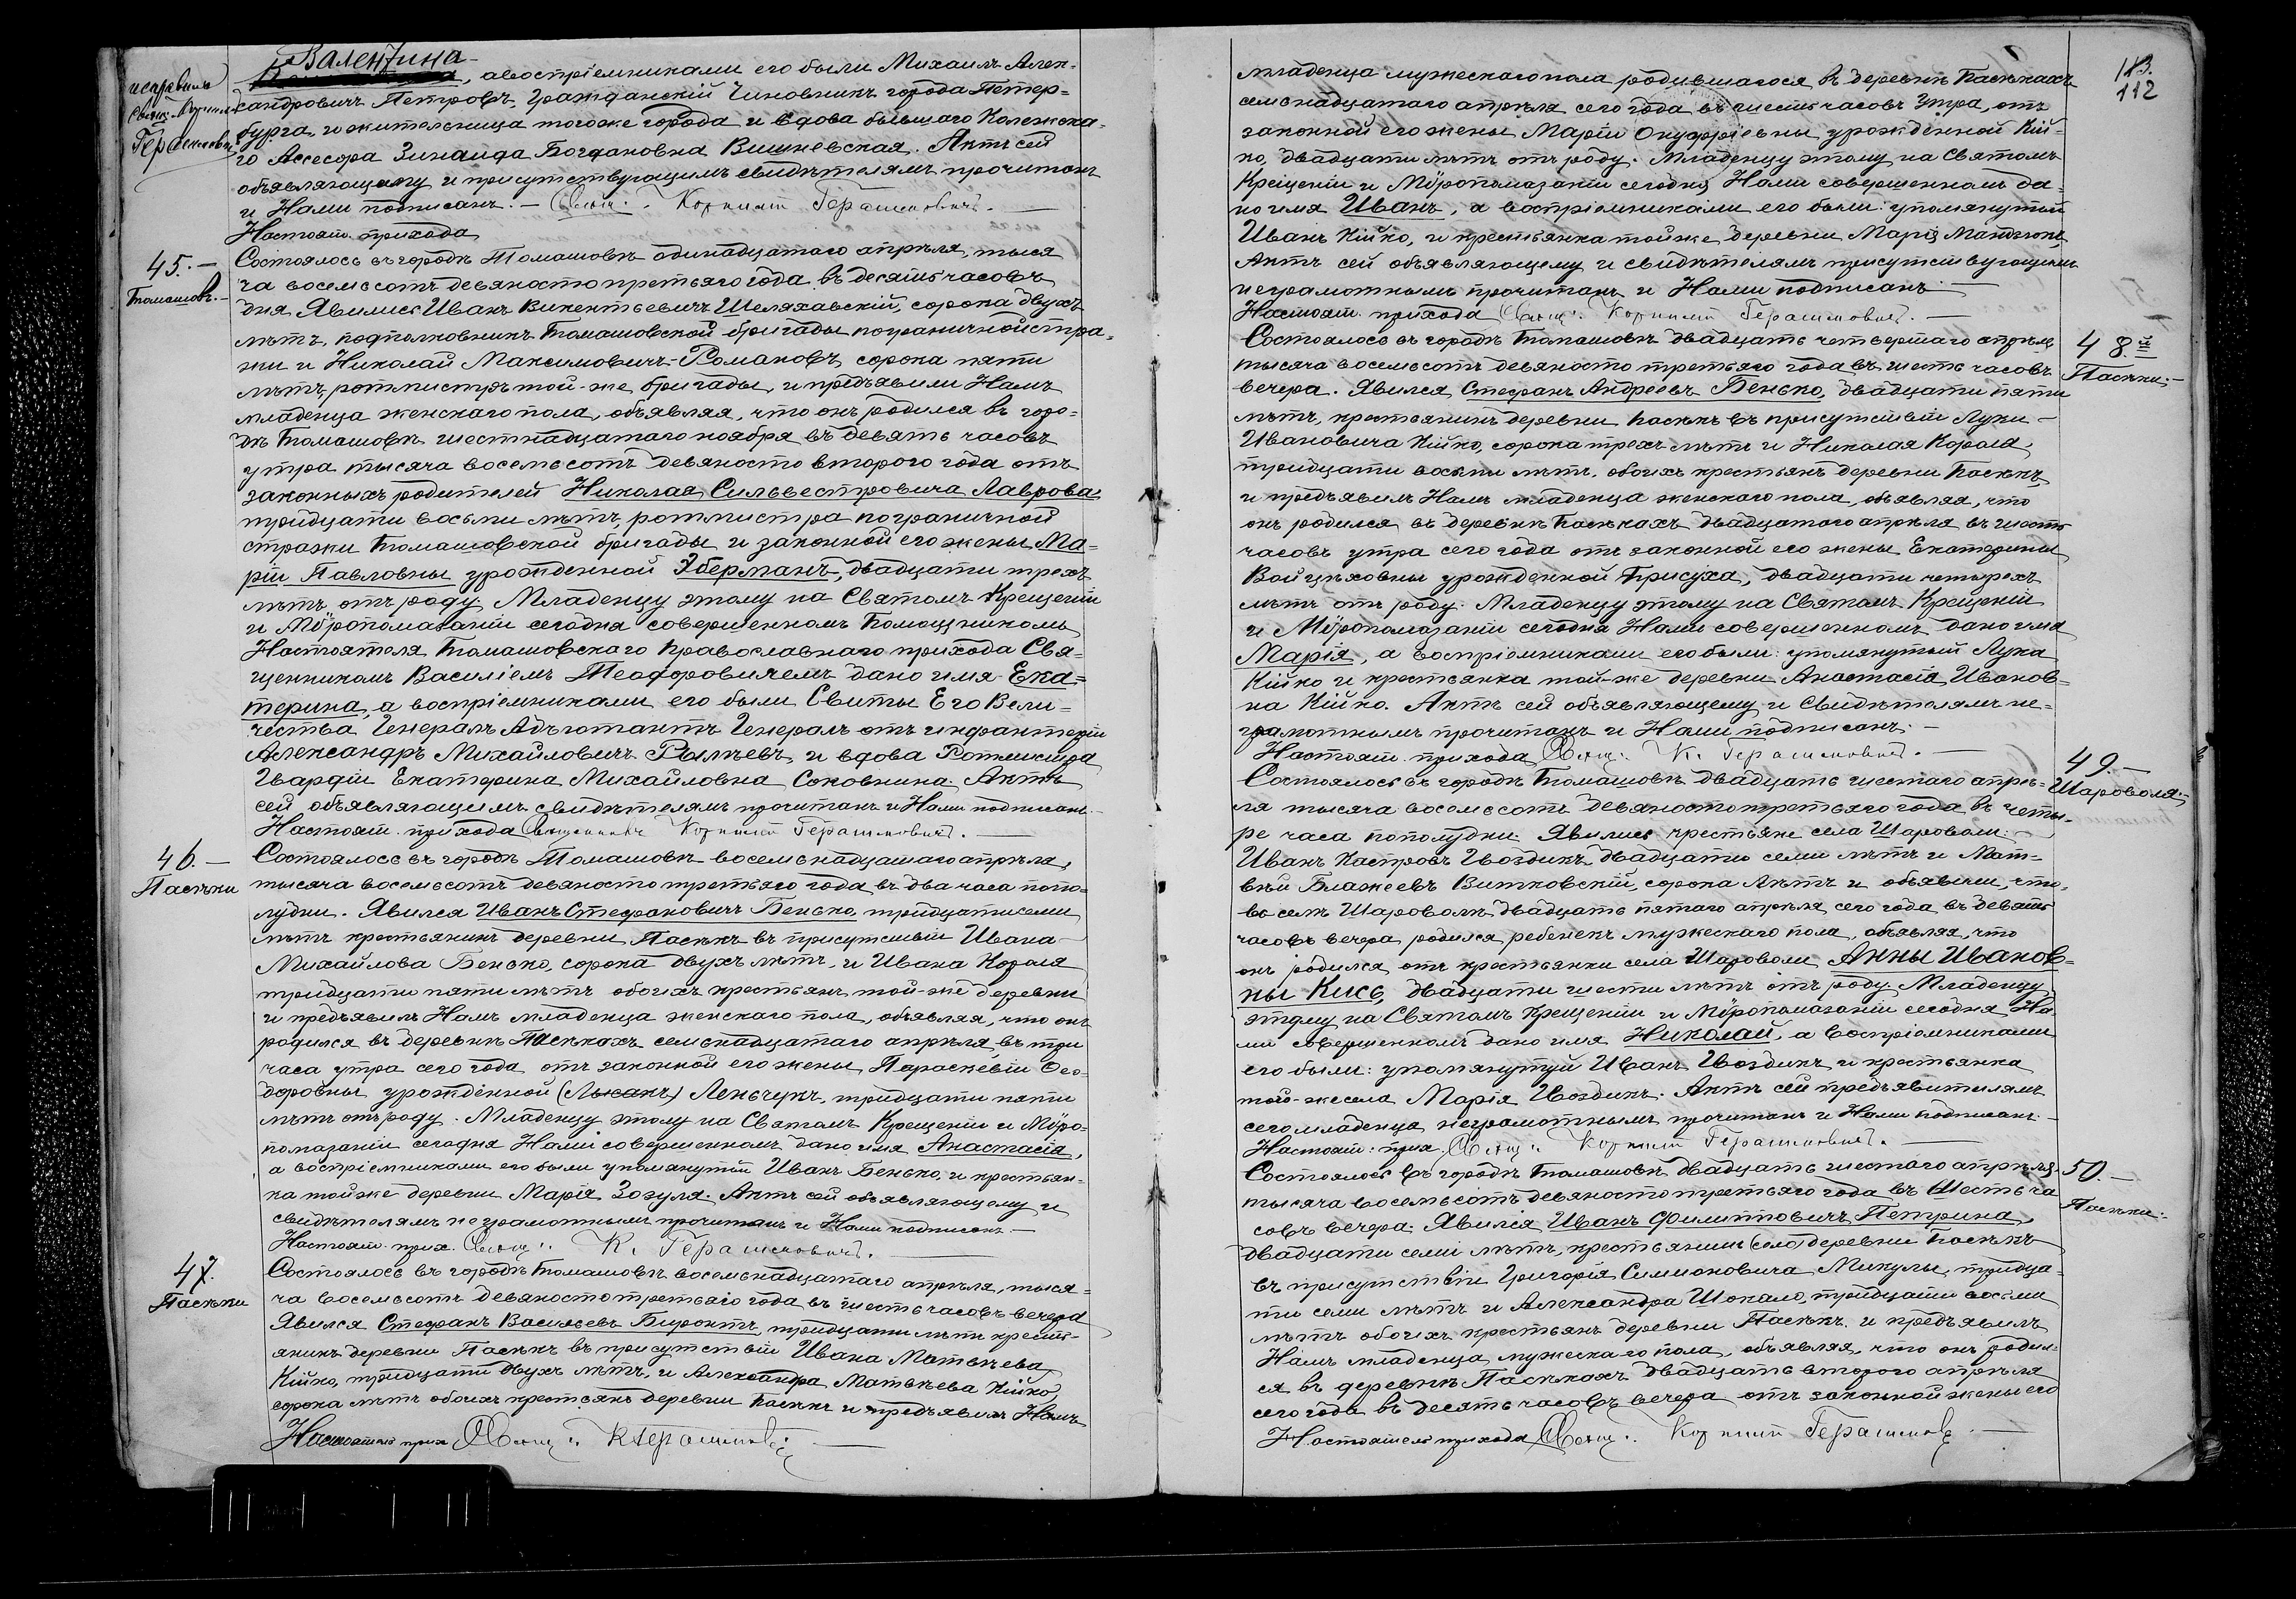 исправилъ
Свящ. Корнилій
Герашимовичъ
Валентина
, авоспріемниками его были Михаилъ Алек-
сандровичъ Петровъ, Гражданскій Чиновникъ города Петер-
бурга, и жительница тогоже города и вдова бывшаго Колежска-
го Ассесора Зинаида Богдановна Вишневская. Актъ сей
объявляющему и присутствующимъ свидѣтелямъ прочитанъ
и Нами подписанъ. — Свящ: Корнилій Герашимовичъ. —
Настоят. прихода
45. —
Томашовъ. —
Состоялось въ городѣ Томашовѣ одинадцатаго апрѣля, тыся
ча восемьсотъ девяносто третьяго года въ десять часовъ
дня. Явились Иванъ Викентьевичъ Шеляхавскій, сорока двухъ
лѣтъ, подполковникъ Томашовской бригады пограничной стра-
жи и Николай Максимовичъ Романовъ, сорока пяти
лѣтъ, ротмистръ той-же бригады, и предъявили Намъ
младенца женскаго пола, объявляя, что онъ родился въ горо-
дѣ Томашовѣ шестнадцатаго ноября въ девять часовъ
утра тысяча восемьсотъ девяносто второго года отъ
законныхъ родителей Николая Сильвестровича Лаврова
тридцати восьми лѣтъ, ротмистра пограничной
стражи Томашовской бригады и законной его жены Ма-
ріи Павловны урожденной Эберманъ, двадцати трехъ
лѣтъ отъ роду. Младенцу этому на Святомъ Крещеніи
и Мѵропомазаніи сегодня совершенномъ Помощникомъ
Настоятеля Томашовскаго Православнаго прихода Свя-
щенникомъ Василіемъ Теодоровичемъ дано имя Ека-
терина, а воспріемниками его были Свиты Его Вели-
чества Генералъ Адъютантъ Генералъ отъ инфантеріи
Александръ Михайловичъ Рылѣевъ, и вдова Ротмистра
Гвардіи Екатерина Михайловна Соковнина. Актъ
сей объявляющимъ свидѣтелямъ прочитанъ и Нами подписанъ.
Настоят. прихода Священникъ Корнилій Герашимовичъ. —
46. —
Пасѣки
Состоялось въ городѣ Томашовѣ восемьнадцатаго апрѣля,
тысяча восемьсотъ девяносто третьяго года въ два часа попо-
лудни. Явился Иванъ Стефановичъ Бенько, тридцати семи
лѣтъ крестьянинъ деревни Пасѣкъ въ присутствіи Ивана
Михайлова Бенько, сорока двухъ лѣтъ, и Ивана Короля
тридцати пяти лѣтъ обоихъ крестьянъ той-же деревни
и предъявилъ Намъ младенца женскаго пола, объявляя, что онъ
родился въ деревнѣ Пасѣкахъ семьнадцатаго апрѣля, въ три
часа утра сего года отъ законной его жены Параскевіи Ѳео-
доровны урождённой (Лысакъ) Леньчукъ, тридцати пяти
лѣтъ отъ роду. Младенцу этому на Святомъ Крещеніи и Мѵро-
помазаніи сегодня Нами совершенномъ дано имя Анастасія,
а воспріемниками его были упомянутый Иванъ Бенько, и крестьян-
ка тойже деревни Марія Зозуля. Актъ сей объявляющему и
свидѣтелямъ неграмотнымъ прочитанъ и Нами подписанъ —
Настоят. прих. Свящ: К. Герашимовичъ. —
47.
Пасѣки
Состоялось въ городѣ Томашовѣ восемьнадцатаго апрѣля, тыся-
ча восемьсотъ девяносто третьяго года въ шесть часовъ вечера
Явился Стефанъ Васильевъ Биронтъ, тридцати лѣтъ кресть-
янинъ деревни Пасѣкъ въ присутствіи Ивана Матвѣева
Кійко, тридцати двухъ лѣтъ, и Александра Матвѣева Кійко,
сорока лѣтъ обоихъ крестьянъ деревни Пасѣкъ и предъявилъ Намъ
Настоятель прих. Свящ: К Герашимовичъ —
113.
112
младенца мужескаго пола родившагося въ деревнѣ Пасѣкахъ
семьнадцатаго апрѣля сего года въ шесть часовъ утра, отъ
законной его жены Маріи Онуфріевны урождённой Кій-
ко, двадцати лѣтъ отъ роду. Младенцу этому на Святомъ
Крещеніи и Мѵропомазаніи сегодня Нами совершенномъ да-
но имя Иванъ, а воспріемниками его были: упомянутый
Иванъ Кійко, и крестьянка тойже деревни Марія
Актъ сей объявляющему и свидѣтелямъ присутствующимъ
неграмотнымъ прочитанъ и Нами подписанъ —
Настоят. прихода Свящ: Корнилій Герашимовичъ. —
48й
Пасѣки. —
Состоялось въ городѣ Томашовѣ двадцать четвертаго апрѣля
тысяча восемьсотъ девяносто третьяго года въ шесть часовъ
вечера. Явился Стефанъ Андреевъ Бенько, двадцати пяти
лѣтъ, крестьянинъ деревни Пасѣкъ въ присутствіи Луки
Ивановича Кійко, сорока трехъ лѣтъ и Николая Короля,
тридцати восьми лѣтъ, обоихъ крестьянъ деревни Пасѣкъ,
и предъявилъ Намъ младенца женскаго пола, объявляя, что
онъ родился въ деревнѣ Пасѣкахъ двадцатаго апрѣля въ шесть
часовъ утра сего года отъ законной его жены Екатерины
Войцѣховны урожденной Присуха, двадцати четырехъ
лѣтъ отъ роду. Младенцу этому на Святомъ Крещеніи
и Мѵропомазаніи сегодня Нами совершенномъ дано имя
Марія, а воспріемниками его были: упомянутый Лука
Кійко и крестьянка той-же деревни Анастасія Иванов-
на Кійко. Актъ сей объявляющему и Свидѣтелямъ не-
грамотнымъ прочитанъ и Нами подписанъ. —
Настоят. прихода Свящ: К. Герашимовичъ. —
49. —
Шароволя. —
Состоялось въ городѣ Томашовѣ двадцать шестаго апрѣ-
ля тысяча восемьсотъ девяносто третьяго года въ четы-
ре часа пополудни. Явились крестьяне села Шароволи: —
Иванъ Гвоздикъ двадцати семи лѣтъ и Мат-
вѣй Блажеевъ Витковскій, сорока лѣтъ и объявили, что-
въ селѣ Шароволѣ двадцать пятаго апрѣля сего года въ девять
часовъ вечера родился ребенекъ мужескаго пола, объявляя, что
онъ родился отъ крестьянки села Шароволи Анны Иванов-
ны Кисъ, двадцати шести лѣтъ отъ роду. Младенцу
этому на Святомъ Крещеніи и Мѵропомазаніи сегодня На-
ми совершенномъ дано имя Николай, а воспріемниками
его были: упомянутый Иванъ Гвоздикъ и крестьянка
того-же села Марія Гвоздикъ. Актъ сей предъявителямъ
сего младенца неграмотнымъ прочитанъ и Нами подписанъ. —
Настоят. прих. Свящ: Корнилій Герашимовичъ. —
50. —
Пасѣки. —
Состоялось въ городѣ Томашовѣ двадцать шестаго апрѣля
тысяча восемьсотъ девяносто третьяго года въ шесть ча
совъ вечера. Явился Иванъ Филипповичъ Петрина,
двадцати семи лѣтъ, крестьянинъ (село) деревни Пасѣкъ
въ присутствіи Григорія Симионовича Микулы, тридца-
ти семи лѣтъ и Александра Шокало, тридцати восьми
лѣтъ обоихъ крестьянъ деревни Пасѣкъ, и предъявилъ
Намъ младенца мужескаго пола, объявляя, что онъ родил-
ся въ деревнѣ Пасѣкахъ двадцать второго апрѣля
сего года въ десять часовъ вечера отъ законной жены его
Настоятель прихода Свящ: Корнилій Герашимовичъ —